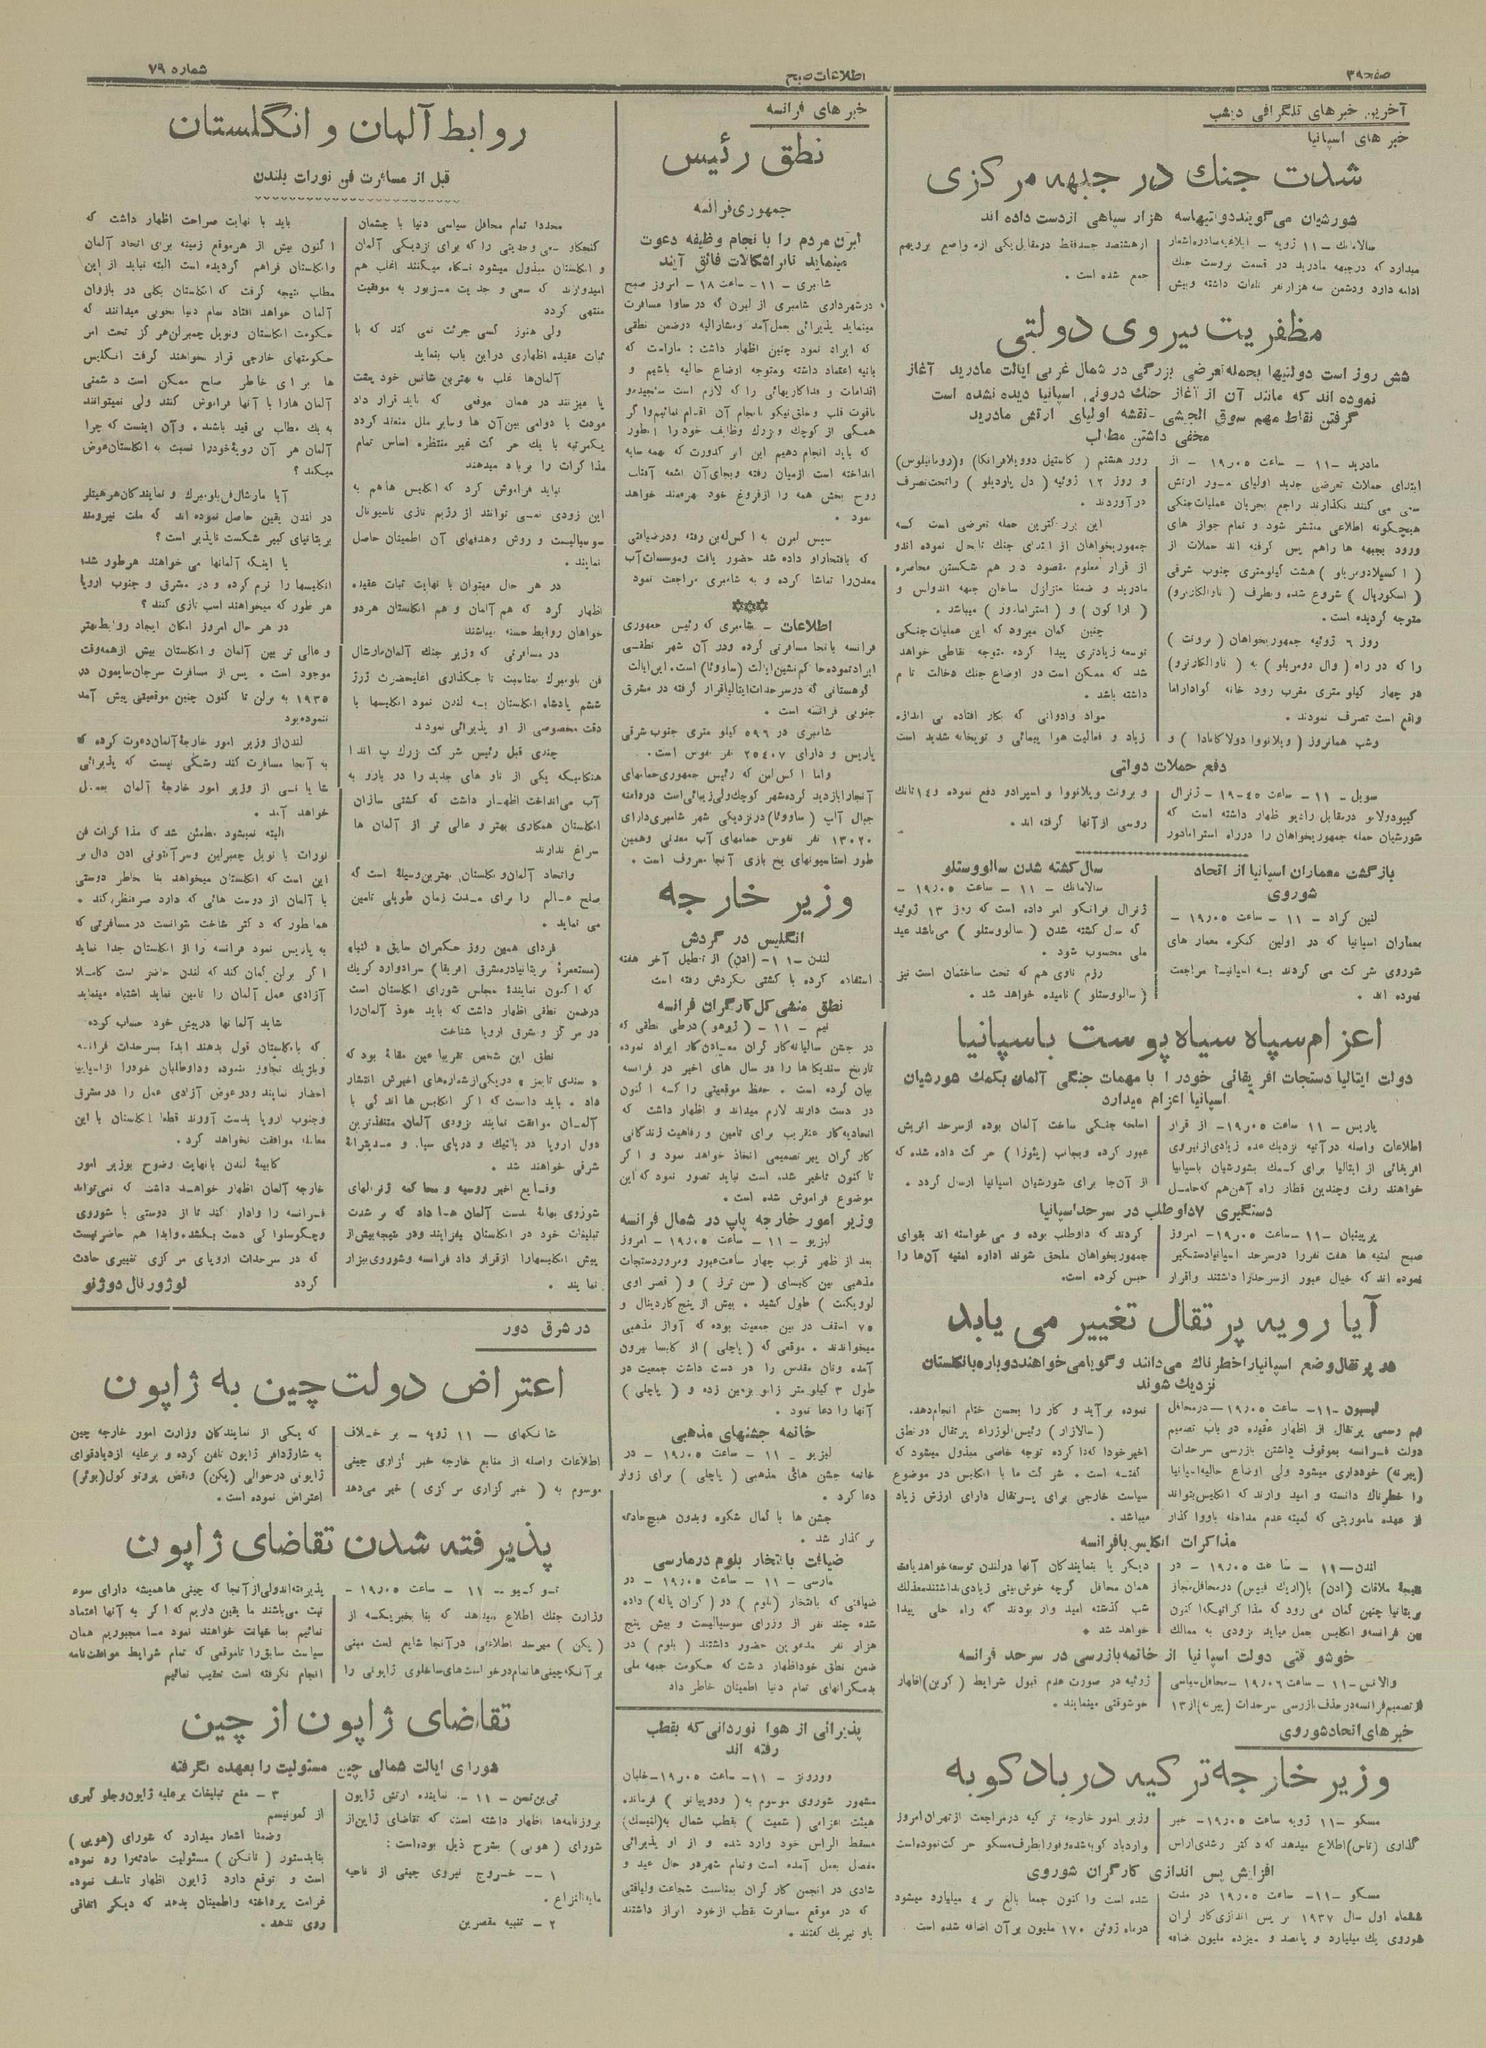 صفحه ۳۹
اطلاعات صبح
شماره ۷۹
آخرین خبرهای تلگرافی دیشب
خبر های اسپانیا
شدت جنك در جبهه مرکزی
شورشیان می گویند دولتیها سه هزار سپاهی از دست داده اند
سالامانك - ۱۱ ژویه - ابلاغیه صادره اشعار
میدارد که در جبهه مادرید در قسمت برونت جنك
ادامه دارد و دشمن سه هزار نفر تلفات داشته و بیش
از هشتصد جسد فقط در مقابل یکی از مواضع بر ویهم
جمع شده است .
مظفریت نیروی دولتی
شش روز است دولتیها بحمله تعرضی بزرگی در شمال غربی ایالت مادرید آغاز
نموده اند که مانند آن از آغاز جنك درونی اسپانیا دیده نشده است
گرفتن نقاط مهم سوق الجیشی - نقشه اولیای ارتش مادرید
مخفی داشتن مطالب
مادرید - ۱۱ - ساعت ۱۹٫۰۵ - از
ابتدای حملات تعرضی جدید اولیای امور ارتش
سعی می کنند نگذارند راجع بجریان عملیات جنگی
هیچگونه اطلاعی منتشر شود و تمام جواز های
ورود بجبهه ها را هم پس گرفته اند حملات از
هشت کیلومتری جنوب شرقی
( اسکوریال ) شروع شده و بطرف ( ناوالکارنرو )
متوجه گردیده است .
روز ۶ ژوئیه جمهوریخواهان ( برونت )
را که در راه ( وال دومریلو ) به ( ناوالکارنرو )
در چهار کیلو متری مغرب رود خانه گواداراما
واقع است تصرف نمودند .
وشب همانروز ( ویلانووا دولاکانادا ) و
روز هشتم ( کاستیل دوویلافرانکا ) و (رومانیلوس)
و روز ۱۲ ژوئیه ( دل پاردیلو ) را تحت تصرف
در آوردند .
این بزرگترین حمله تعرضی است که
جمهوریخواهان از ابتدای جنك تا بحال نموده اند و
از قرار معلوم مقصود در هم شکستن محاصره
مادرید و ضمنا متزلزل ساختن جبهه اندولس و
( آراگون ) و ( استرامادور ) میباشد .
چنین گمان میرود که این عملیات جنگی
توسعه زیادتری پیدا کرده متوجه نقاطی خواهد
شد که ممکن است در اوضاع جنك دخالت تام
داشته باشد .
مواد و ادواتی که بکار افتاده بی اندازه
زیاد و فعالیت هوا پیمائی و توپخانه شدید است
دفع حملات دولتی
سویل - ۱۱ - ساعت ۱۹٫۴۵ - ژنرال
کیپودولانو در مقابل رادیو اظهار داشته است که
شورشیان حمله جمهوریخواهان را در راه استرامادور
و برونت ویلانووا و اسپرادو دفع نموده و ۱۴ تانك
روسی از آنها گرفته اند .
بازگشت معماران اسپانیا از اتحاد
شوروی
لنین گراد - ۱۱ - ساعت ۱۹٫۰۵ -
معماران اسپانیا که در اولین کنگره معمار های
شوروی شرکت می کردند به اسپانیا مراجعت
نموده اند .
سال کشته شدن سالووستلو
سالامانك - ۱۱ - ساعت ۱۹٫۰۵ -
ژنرال فرانکو امر داده است که روز ۱۳ ژوئیه
که سال کشته شدن ( سالووستلو ) می باشد عید
ملی محسوب شود .
رزم ناوی هم که تحت ساختمان است نیز
( سالووستلو ) نامیده خواهد شد .
اعزام سپاه سیاه پوست باسپانیا
دولت ایتالیا دستجات افریقائی خود را با مهمات جنگی آلمان بکمك شورشیان
اسپانیا اعزام میدارد
پاریس - ۱۱ ساعت ۱۹٫۰۵ - از قرار
اطلاعات واصله در آتیه نزدیك عده زیادی از نیروی
افریقائی از ایتالیا برای کمك بشورشیان باسپانیا
خواهند رفت و چندین قطار راه آهن هم که حامل
اسلحه جنگی ساخت آلمان بوده از سرحد اتریش
عبور کرده و بجانب حرکت داده شده که
از آن جا برای شورشیان اسپانیا ارسال گردد .
دستگیری ۷ داوطلب در سرحد اسپانیا
پرپینیان - ۱۱ - ساعت ۱۹٫۰۵ - امروز
صبح امنیه ها هفت نفر را در سرحد اسپانیا دستگیر
نموده اند که خیال عبور از سرحد را داشتند و اقرار
کردند که داوطلب بوده و می خواسته اند بقوای
جمهوریخواهان ملحق شوند اداره امنیه آن ها را
حبس کرده است .
آیا رویه پرتقال تغییر می یابد
در پرتقال وضع اسپانیا را خطرناك می دانند و گویا می خواهند دوباره بانگلستان
نزدیك شوند
لیسبون - ۱۱ - ساعت ۱۹٫۰۵ - در محافل
نیم رسمی پرتقال از اظهار عقیده در باب تصمیم
دولت فرانسه بموقوف داشتن بازرسی سرحدات
(پیرنه) خودداری میشود ولی اوضاع حالیه اسپانیا
را خطرناك دانسته و امید وارند که انگلیس بتواند
از عهده ماموریتی که کمیته عدم مداخله باو واگذار
نموده برآید و کار را بحسن ختام انجام دهد .
(سالازار) رئیس الوزراء پرتقال در نطق
اخیر خود اکیدا کرده توجه خاصی مبذول میشود که
گفته است . شرکت ما با انگلیس در موضوع
سیاست خارجی برای پرتقال دارای ارزش زیاد
میباشد .
مذاکرات انگلیس با فرانسه
لندن - ۱۱ - ساعت ۱۹٫۰۵ - در
نتیجه ملاقات (ادن) با (اریك فیپس) در محافل مجاز
بریتانیا چنین گمان می رود که مذاکراتیکه اکنون
بین فرانسه و انگلیس بعمل میاید بزودی به ممالك
دیگر یا بنمایندگان آنها در لندن توسعه خواهد یافت
همان محافل گرچه خوش بینی زیادی نداشتند معذلك
شب گذشته امید وار بودند که راه حلی پیدا
خواهد شد .
خوشوقتی دولت اسپانیا از خاتمه بازرسی در سرحد فرانسه
والانس - ۱۱ - ساعت ۱۹٫۰۶ - محافل سیاسی
از تصمیم فرانسه در حذف بازرسی سرحدات (پیرنه) از ۱۳
ژوئیه در صورت عدم قبول شرایط اظهار
خوشوقتی مینمایند .
خبرهای اتحاد شوروی
وزیر خارجه ترکیه در باد کوبه
مسکو - ۱۱ ژویه ساعت ۱۹٫۰۵ - خبر
گذاری (تاس) اطلاع میدهد که دکتر رشدی اراس
وزیر امور خارجه ترکیه در مراجعت از تهران امروز
وارد باد کوبه شده و فورا بطرف مسکو حرکت نموده است
افزایش پس اندازی کارگران شوروی
مسکو - ۱۱ - ساعت ۱۹٫۰۵ در مدت
ششماه اول سال ۱۹۳۷ بر پس اندازی کارگران
شوروی یك میلیارد و پانصد و سیزده ملیون اضافه
شده است و اکنون جمعا بالغ بر ٤ میلیارد میشود
در ماه ژوئن ۱۷۰ ملیون بر آن اضافه شده است .
خبر های فرانسه
نطق رئیس
جمهوری فرانسه
لبرن مردم را بانجام وظیفه دعوت
مینماید تا بر اشکالات فائق آیند
شامبری - ۱۱ - ساعت ۱۸ - امروز صبح
در شهرداری شامبری از لبرن که در ساوا مسافرت
مینماید پذیرائی بعمل آمد و مشارالیه در ضمن نطقی
که ایراد نمود چنین اظهار داشت : ما راست که
بآتیه اعتماد داشته و متوجه اوضاع حالیه باشیم و
اقدامات و فداکاریهائی را که لازم است سنجیده و
باقوت قلب و خلق نیکو بانجام آن اقدام نمائیم و اگر
همگی از کوچك و بزرك وظایف خود را بطور
که باید انجام دهیم این ابر کدورت که همه سایه
انداخته است از میان رفته و بجای آن اشعه آفتاب
روح بخش همه را از فروغ خود بهره مند خواهد
نمود .
سپس لبرن به اکس لبن رفته و در ضیافتی
که بافتخار او داده شد حضور یافت و موسسات آب
معدن را تماشا کرده و به شامبری مراجعت نمود
***
اطلاعات - شامبری که رئیس جمهوری
فرانسه بانجا مسافرتی کرده و در آن شهر نطقی
ایراد نموده حاکم نشین ایالت (ساووا) است . این ایالت
کوهستانی که در سرحدات ایتالیا قرار گرفته در مشرق
جنوبی فرانسه است .
شامبری در ۵۹٦ کیلو متری جنوب شرقی
پاریس و دارای ۲۵۴۰۷ نفر نفوس است .
و اما اکس لبن که رئیس جمهوری حمامهای
آنجا را بازدید کرده شهر کوچك ولی زیبائی است در دامنه
جبال آلپ (ساووا) در نزدیکی شهر شامبری دارای
۱۳۰۲۰ نفر نفوس حمامهای آب معدنی و همین
طور استاسیونهای یخ بازی آنجا معروف است .
وزیر خارجه
انگلیس در گردش
لندن - ۱۱ - (ادن) از تعطیل آخر هفته
استفاده کرده با کشتی بگردش رفته است
نطق منشی کل کارگران فرانسه
نیم - ۱۱ - (ژوهو) در طی نطقی که
در جشن سالیانه کارگران معادن کار ایراد نموده
تاریخ سندیکاها را در سال های اخیر در فرانسه
بیان کرده است . حفظ موقعیتی را که اکنون
در دست دارند لازم میداند و اظهار داشت که
اتحادیه کار عنقریب برای تامین و رفاهیت زندگانی
کارگران پیر تصمیمی اتخاذ خواهد نمود و اگر
تا کنون تاخیر شده است نباید تصور نمود که این
موضوع فراموش شده است .
وزیر امور خارجه پاپ در شمال فرانسه
لیزیو - ۱۱ - ساعت ۱۹٫۰۵ - امروز
بعد از ظهر قریب چهار ساعت عبور و مرور دستجات
مذهبی بین کلیسای ( سن ترز ) و ( قصر اوی
لوویکنت ) طول کشید . بیش از پنج کاردینال و
۷۵ اسقف در بین جمعیت بوده که آواز مذهبی
میخواندند . موقعی که (پاچلی) از کلیسا بیرون
آمده و نان مقدس را در دست داشت جمعیت در
طول ۳ کیلو متر زانو بزمین زده و ( پاچلی )
آنها را دعا نمود .
خاتمه جشنهای مذهبی
لیزیو - ۱۱ - ساعت ۱۹٫۰۵ - در
خاتمه جشن های مذهبی ( پاچلی ) برای زوار
دعا کرد .
جشن ها با کمال شکوه و بدون هیچ حادثه
برگذار شد .
ضیافت بافتخار بلوم در مارسی
مارسی - ۱۱ - ساعت ۱۹٫۰۵ - در
ضیافتی که بافتخار (بلوم) در (گران پاله) داده
شده چند نفر از وزرای سوسیالیست و بیش پنج
هزار نفر مدعوین حضور داشتند ( بلوم ) در
ضمن نطق خود اظهار داشت که حکومت جبهه ملی
بدمکراتهای تمام دنیا اطمینان خاطر داد
پذیرائی از هوا نوردانی که بقطب
رفته اند
وورونژ - ۱۱ - ساعت ۱۹٫۰۵ - خلبان
مشهور شوروی موسوم به ( ودوپیانو ) فرمانده
هیئت اعزامی ( شمیت ) بقطب شمال به
مسقط الراس خود وارد شده و از او پذیرائی
مفصل بعمل آمده است و تمام شهر در حال عید و
شادی در انجمن کارگران بمناسبت شجاعت و لیاقتی
که در موقع مسافرت بقطب از خود ابراز داشتند
باو تبریك گفتند .
روابط آلمان و انگلستان
قبل از مسافرت فن نورات بلندن
مجددا تمام محافل سیاسی دنیا با چشمان
کنجکاو سعی و جدیتی را که برای نزدیکی آلمان
و انگلستان مبذول میشود نگاه میکنند اغلب هم
امیدوارند که سعی و جدیت مزبور به موفقیت
منتهی گردد
ولی هنوز کسی جرئت نمی کند که با
ثبات عقیده اظهاری در این باب بنماید
آلمان ها غلب به بهترین شانس خود پشت
پا میزنند در همان موقعی که باید قرار داد
مودت با دوامی بین آن ها و سایر ملل منعقد گردد
یکمرتبه با یك حرکت غیر منتظره اساس تمام
مذاکرات را برباد میدهند
نباید فراموش کرد که انگلیس ها هم به
این زودی نمی توانند از رژیم نازی ناسیونال
سوسیالیست و روش و هدفهای آن اطمینان حاصل
نمایند .
در هر حال میتوان با نهایت ثبات عقیده
اظهار کرد که هم آلمان و هم انگلستان هر دو
خواهان روابط حسنه میباشند
در مسافرتی که وزیر جنك آلمان مارشال
فن بلومبرك بمناسبت تاجگذاری اعلیحضرت ژرژ
ششم پادشاه انگلستان به لندن نمود انگلیسها با
دقت مخصوصی از او پذیرائی نمودند
چندی قبل رئیس شرکت بزرك
هنگامیکه یکی از ناو های جدید را در بارو به
آب می انداخت اظهار داشت که کشتی سازان
انگلستان همکاری بهتر و عالی تر از آلمان ها
سراغ ندارند
و اتحاد آلمان و انگلستان بهترین وسیله است که
صلح عالم را برای مدت زمان طویلی تامین
می نماید .
فردای همین روز حکمران سابق
(مستعمره بریتانیا در مشرق افریقا) سر ادوارد گریك
که اکنون نماینده مجلس شورای انگلستان است
در ضمن نطقی اظهار داشت که باید نفوذ آلمان را
در مرکز و شرق اروپا شناخت
نطق این شخص تقریبا عین مقاله بود که
« سندی تایمز » در یکی از شماره های اخیرش انتشار
داد . باید دانست که اگر انگلیس ها اندکی با
آلمان موافقت نمایند بزودی آلمان متنفذترین
دول اروپا در بالتیك و دریای سیاه و مدیترانه
شرقی خواهند شد .
وقایع اخیر روسیه و محاکمه ژنرالهای
شوروی بهانه بدست آلمان ها داد که بر شدت
تبلیغات خود در انگلستان بیفزایند و در نتیجه بیش از
پیش انگلیسها را از قرار داد فرانسه و شوروی بیزار
نمایند .
باید با نهایت صراحت اظهار داشت که
اکنون بیش از هر موقع زمینه برای اتحاد آلمان
و انگلستان فراهم گردیده است البته نباید از این
مطلب نتیجه گرفت که انگلستان بکلی در بازوان
آلمان خواهد افتاد تمام دنیا بخوبی میدانند که
حکومت انگلستان و نویل چمبرلن هرگز تحت امر
حکومتهای خارجی قرار نخواهند گرفت انگلیس
ها برای خاطر صلح ممکن است دشمنی
آلمان ها را با آنها فراموش کنند ولی نمیتوانند
به یك مطلب بی قید باشند . و آن اینست که چرا
آلمان هر آن رویه خود را نسبت به انگلستان عوض
میکند ؟
آیا مارشال فن بلومبرك و نمایندگان هر هیتلر
در لندن یقین حاصل نموده اند که ملت نیرومند
بریتانیای کبیر شکست ناپذیر است ؟
یا اینکه آلمانها می خواهند هر طور شده
انگلیسها را نرم کرده و در مشرق و جنوب اروپا
هر طور که میخواهند اسب تازی کنند ؟
در هر حال امروز امکان ایجاد روابط بهتر
و عالی تر بین آلمان و انگلستان بیش از همه وقت
موجود است . پس از مسافرت سرجان سایمون در
۱۹۳۵ به برلن تا کنون چنین موقعیتی پیش آمد
ننموده بود
لندن از وزیر امور خارجه آلمان دعوت کرده که
به آنجا مسافرت کند و شکی نیست که پذیرائی
شایانی از وزیر امور خارجه آلمان بعمل
خواهد آمد .
البته نمیشود مطمئن شد که مذاکرات فن
نورات با نویل چمبرلین و سر آنتونی ادن دال بر
این است که انگلستان میخواهد بنا بخاطر دوستی
با آلمان از دوست هائی که دارد صرفنظر کند .
همانطور که دکتر شاخت نتوانست در مسافرتی که
به پاریس نمود فرانسه را از انگلستان جدا نماید
اگر برلن گمان کند که لندن حاضر است کاملا
آزادی عمل آلمان را تامین نماید اشتباه مینماید
شاید آلمانها در پیش خود حساب کرده
که بانگلستان قول بدهند ابدا بسرحدات فرانسه
و بلژیك تجاوز ننموده و داوطلبان خود را از اسپانیا
احضار نمایند و در عوض آزادی عمل را در مشرق
و جنوب اروپا بدست آورند قطعا انگلستان با این
معامله موافقت نخواهد کرد .
کابینه لندن بانهایت وضوح بوزیر امور
خارجه آلمان اظهار خواهد داشت که نمی تواند
فرانسه را وادار کند تا از دوستی با شوروی
و چکوسلواکی دست بکشد و ابدا هم حاضر نیست
که در سرحدات اروپای مرکزی تغییری حادث
گردد
لوژورنال دوژنو
در شرق دور
اعتراض دولت چین به ژاپون
شانگهای - ۱۱ ژویه - بر خلاف
اطلاعات واصله از منابع خارجه خبر گزاری چینی
موسوم به ( خبر گزاری مرکزی ) خبر می دهد
که یکی از نمایندگان وزارت امور خارجه چین
به شارژدافر ژاپون تلفن کرده و بر علیه ازدیاد قوای
ژاپونی در حوالی (پکن) و نقض پروتو کول (بوکر)
اعتراض نموده است .
پذیرفته شدن تقاضای ژاپون
توکیو - ۱۱ - ساعت ۱۹٫۰۵ -
وزارت جنك اطلاع میدهد که بنا بخبریکه از
(پکن) میرسد اطلاعاتی در آنجا شایع است مبنی
بر آنکه چینی ها تمام درخواست های ساخلوی ژاپونی را
پذیرفته اند ولی از آنجا که چینی ها همیشه دارای سوء
نیت می باشند ما یقین داریم که اگر به آنها اعتماد
نمائیم بما خیانت خواهند نمود مسا مجبوریم همان
سیاست سابق را تا موقعی که تمام شرایط موافقت نامه
انجام نگرفته است تعقیب نمائیم
تقاضای ژاپون از چین
شورای ایالت شمالی چین مسئولیت را بعهده نگرفته
تی ین تسن - ۱۱ - نماینده ارتش ژاپون
بروزنامه ها اظهار داشته است که تقاضای ژاپن از
شورای ( هوپی ) بشرح ذیل بوده است :
۱ - خروج نیروی چینی از ناحیه
مابه النزاع .
۲ - تنبیه مقصرین
۳ - منع تبلیغات بر علیه ژاپون و جلوگیری
از کمونیسم
و ضمنا اشعار میدارد که شورای (هوپی)
بنا بدستور ( نانکن ) مسئولیت حادثه را رد نموده
است و توقع دارد ژاپون اظهار تاسف نموده
غرامت پرداخته و اطمینان بدهد که دیگر اتفاقی
روی ندهد .